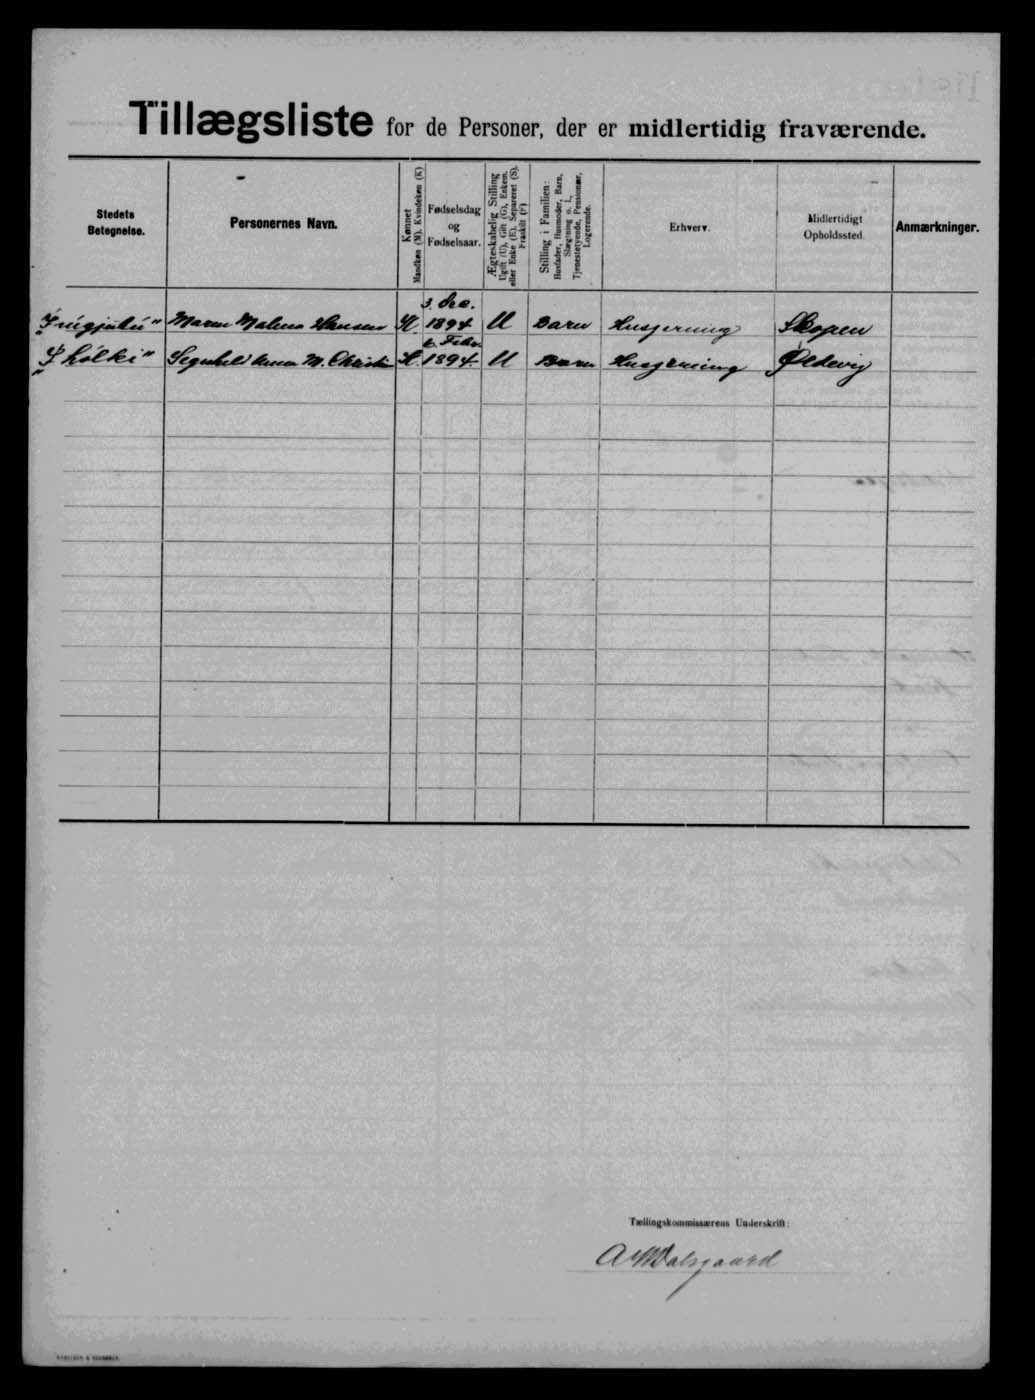 Tillægsliste for de Personer, der er midlertidig fraværende.
Stedets Betegnelse.
Personernes Navn.
Kønnet
Mandkøn (M). Kvindekøn (K)
Fødselsdag
og
Fødselsaar.
Ægteskabelig Stilling
Ugift (U), Gift (G), Enkem.
eller Enke (E), Separeret (S),
Fraskilt (F)
Stilling i Familien:
Husfader, Husmoder, Barn,
Slægtning o. l.,
Tjenestetyende, Pensionær,
Logerende.
Erhverv.
Midlertidigt
Opholdssted.
Anmærkninger.
3. Dec.
Maren Malena Hansen K. 1894 U Barn Husgerning Skopen
6. Febr.
"I hólki" Anna M. Christin K. 1894. U Barn Husgerning Øldevig
Tællingskommissærens Underskrift:
Dalsgaard